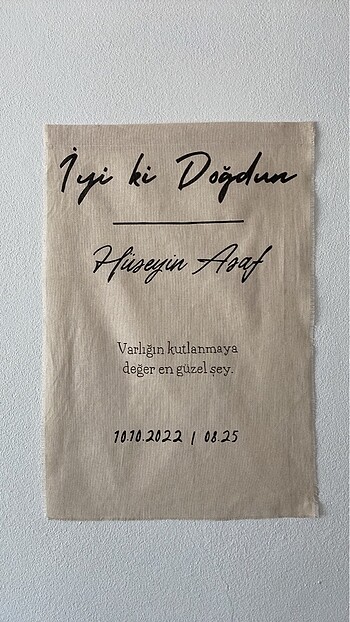 İyi ki Doğdun
Hüseyin Asaf
Varlığın kutlanmaya
değer en güzel şey.
10.10.2022 | 08.25